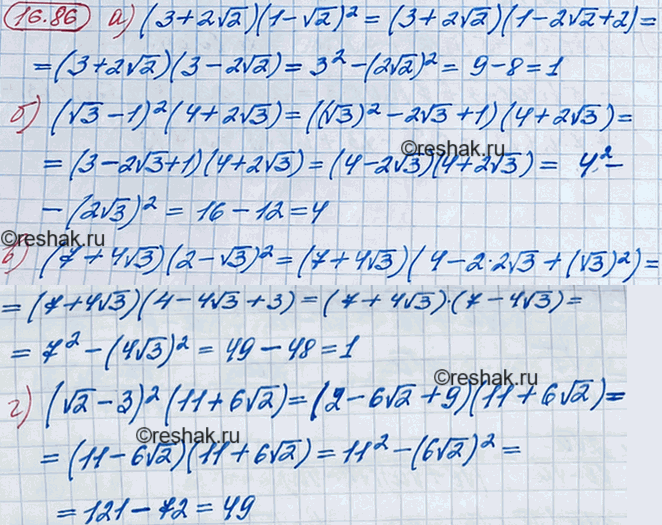 16.86 а) (3+2√2)(1-√2)² = (3+2√2)(1-2√2+2) =
= (3+2√2)(3-2√2) = 3² - (2√2)² = 9-8 = 1
б) (√3-1)²(4+2√3) = ((√3)² - 2√3+1)(4+2√3) =
©reshak.ru
= (3-2√3+1)(4+2√3) = (4-2√3)(4+2√3) = 4² -
- (2√3)² = 16-12 = 4
©reshak.ru
в) (7+4√3)(2-√3)² = (7+4√3)(4-2·2√3+(√3)²) =
= (7+4√3)(4-4√3+3) = (7+4√3)·(7-4√3) =
= 7² - (4√3)² = 49-48 = 1
©reshak.ru
г) (√2-3)²(11+6√2) = (2-6√2+9)(11+6√2) =
©reshak.ru
= (11-6√2)(11+6√2) = 11² - (6√2)² =
= 121-72 = 49